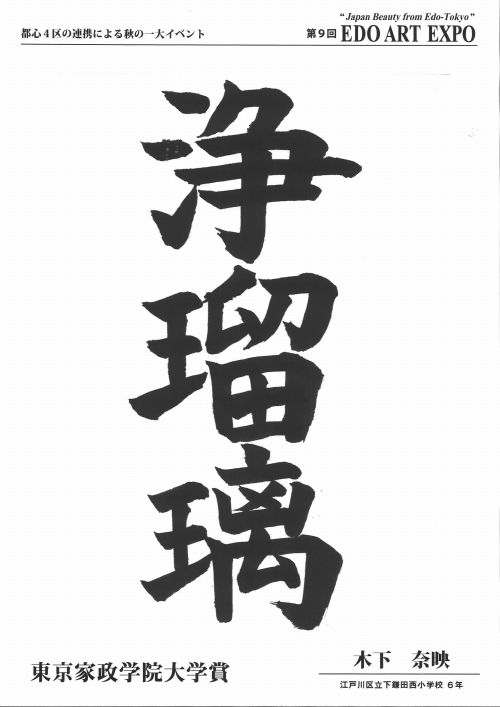 都心4区の連携による秋の一大イベント
"Japan Beauty from Edo-Tokyo"
第9回 EDO ART EXPO
浄瑠璃
東京家政学院大学賞
木下 奈映
江戸川区立下鎌田西小学校 6年